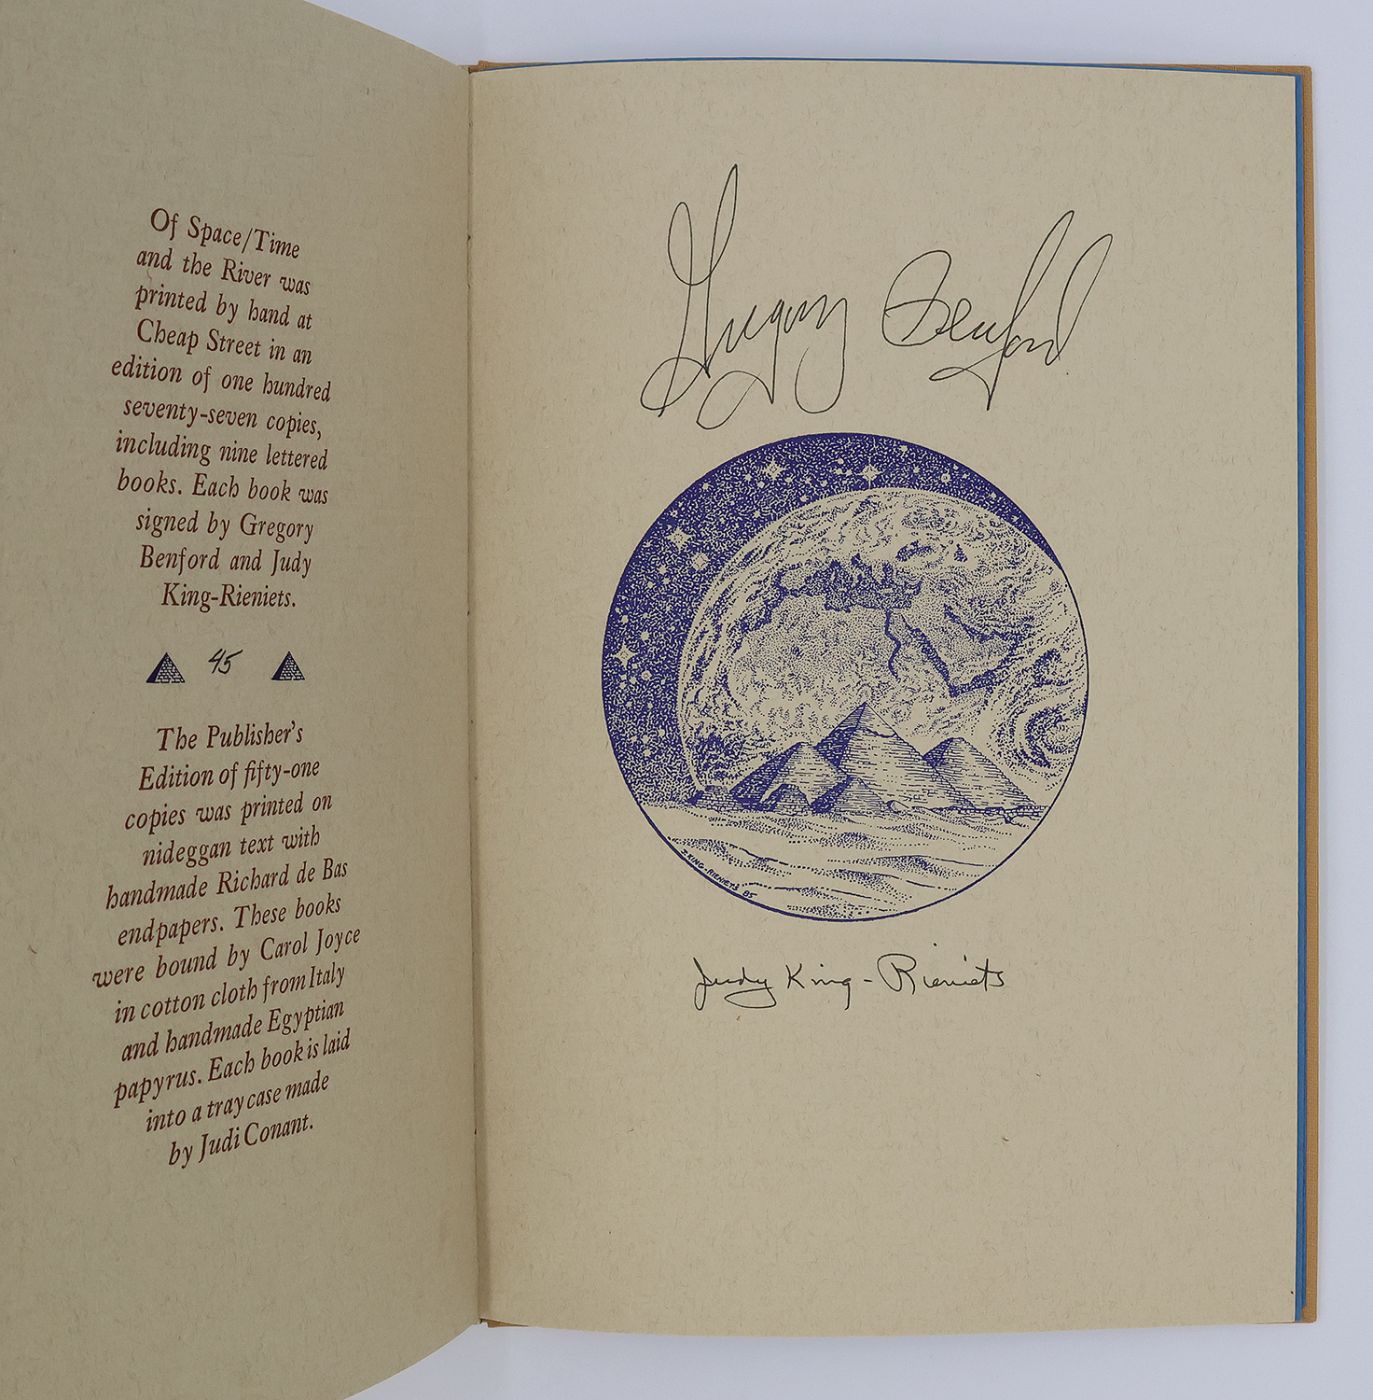 Of Space/Time
and the River was
printed by hand at
Cheap Street in an
edition of one hundred
seventy-seven copies,
including nine lettered
books. Each book was
signed by Gregory
Benford and Judy
King-Rieniets.
45
The Publisher's
Edition of fifty-one
copies was printed on
nideggan text with
handmade Richard de Bas
endpapers. These books
were bound by Carol Joyce
in cotton cloth from Italy
and handmade Egyptian
papyrus. Each book is laid
into a tray case made
by Judi Conant.
Gregory Benford
J. KING-RIENIETS 85
Judy King-Rieniets